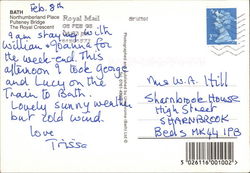 Feb. 8th
BATH
Northumberland Place
Pulteney Bridge
The Royal Crescent
Royal Mail
I am staying with
William & Joanna for
the week-end. This
afternoon I took George
and Lucy on the
Train to Bath.
Lovely sunny weather
but cold wind.
Love
Trissa
Mrs W. A. Hill
Sharnbrook House
High Street
SHARNBROOK
Beds MK44 1PB
5 026116 001002